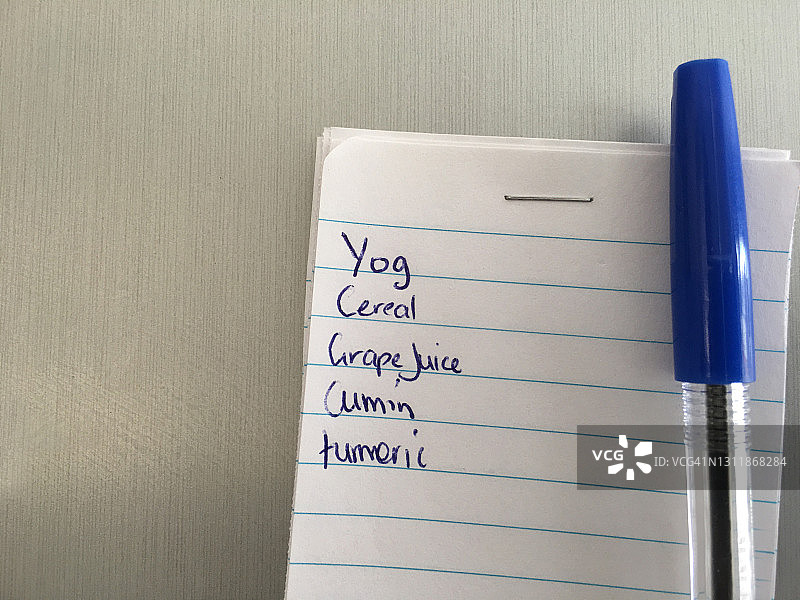 Yog
Cereal
Grape Juice
Cumin
tumeric
VCG
ID: VCG41N1311868284